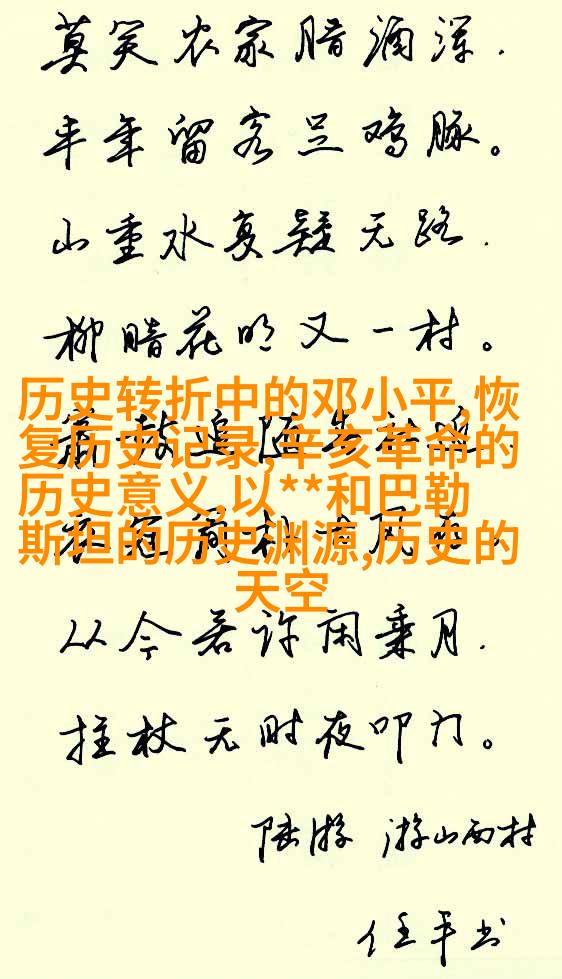 莫笑农家腊酒浑.
丰年留客足鸡豚。
山重水复疑无路.
柳暗花明又一村。
历史转折中的邓小平,恢
复历史记录,辛亥革命的
历史意义,以**和巴勒
斯坦的历史渊源,历史的
天空
从今若许闲乘月.
拄杖无时夜叩门。
陆游 游山西村
任平书